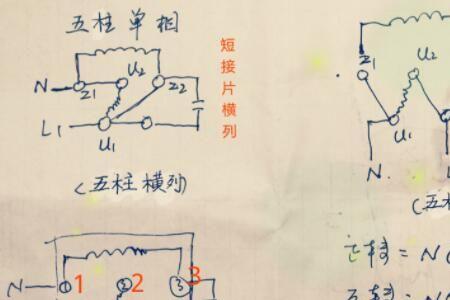 五柱单相
短接片横列
U2
N
Z1
Z2
L1
U1
(五柱横列)
Z1
U2
U1
N
N
1
2
3
2
3